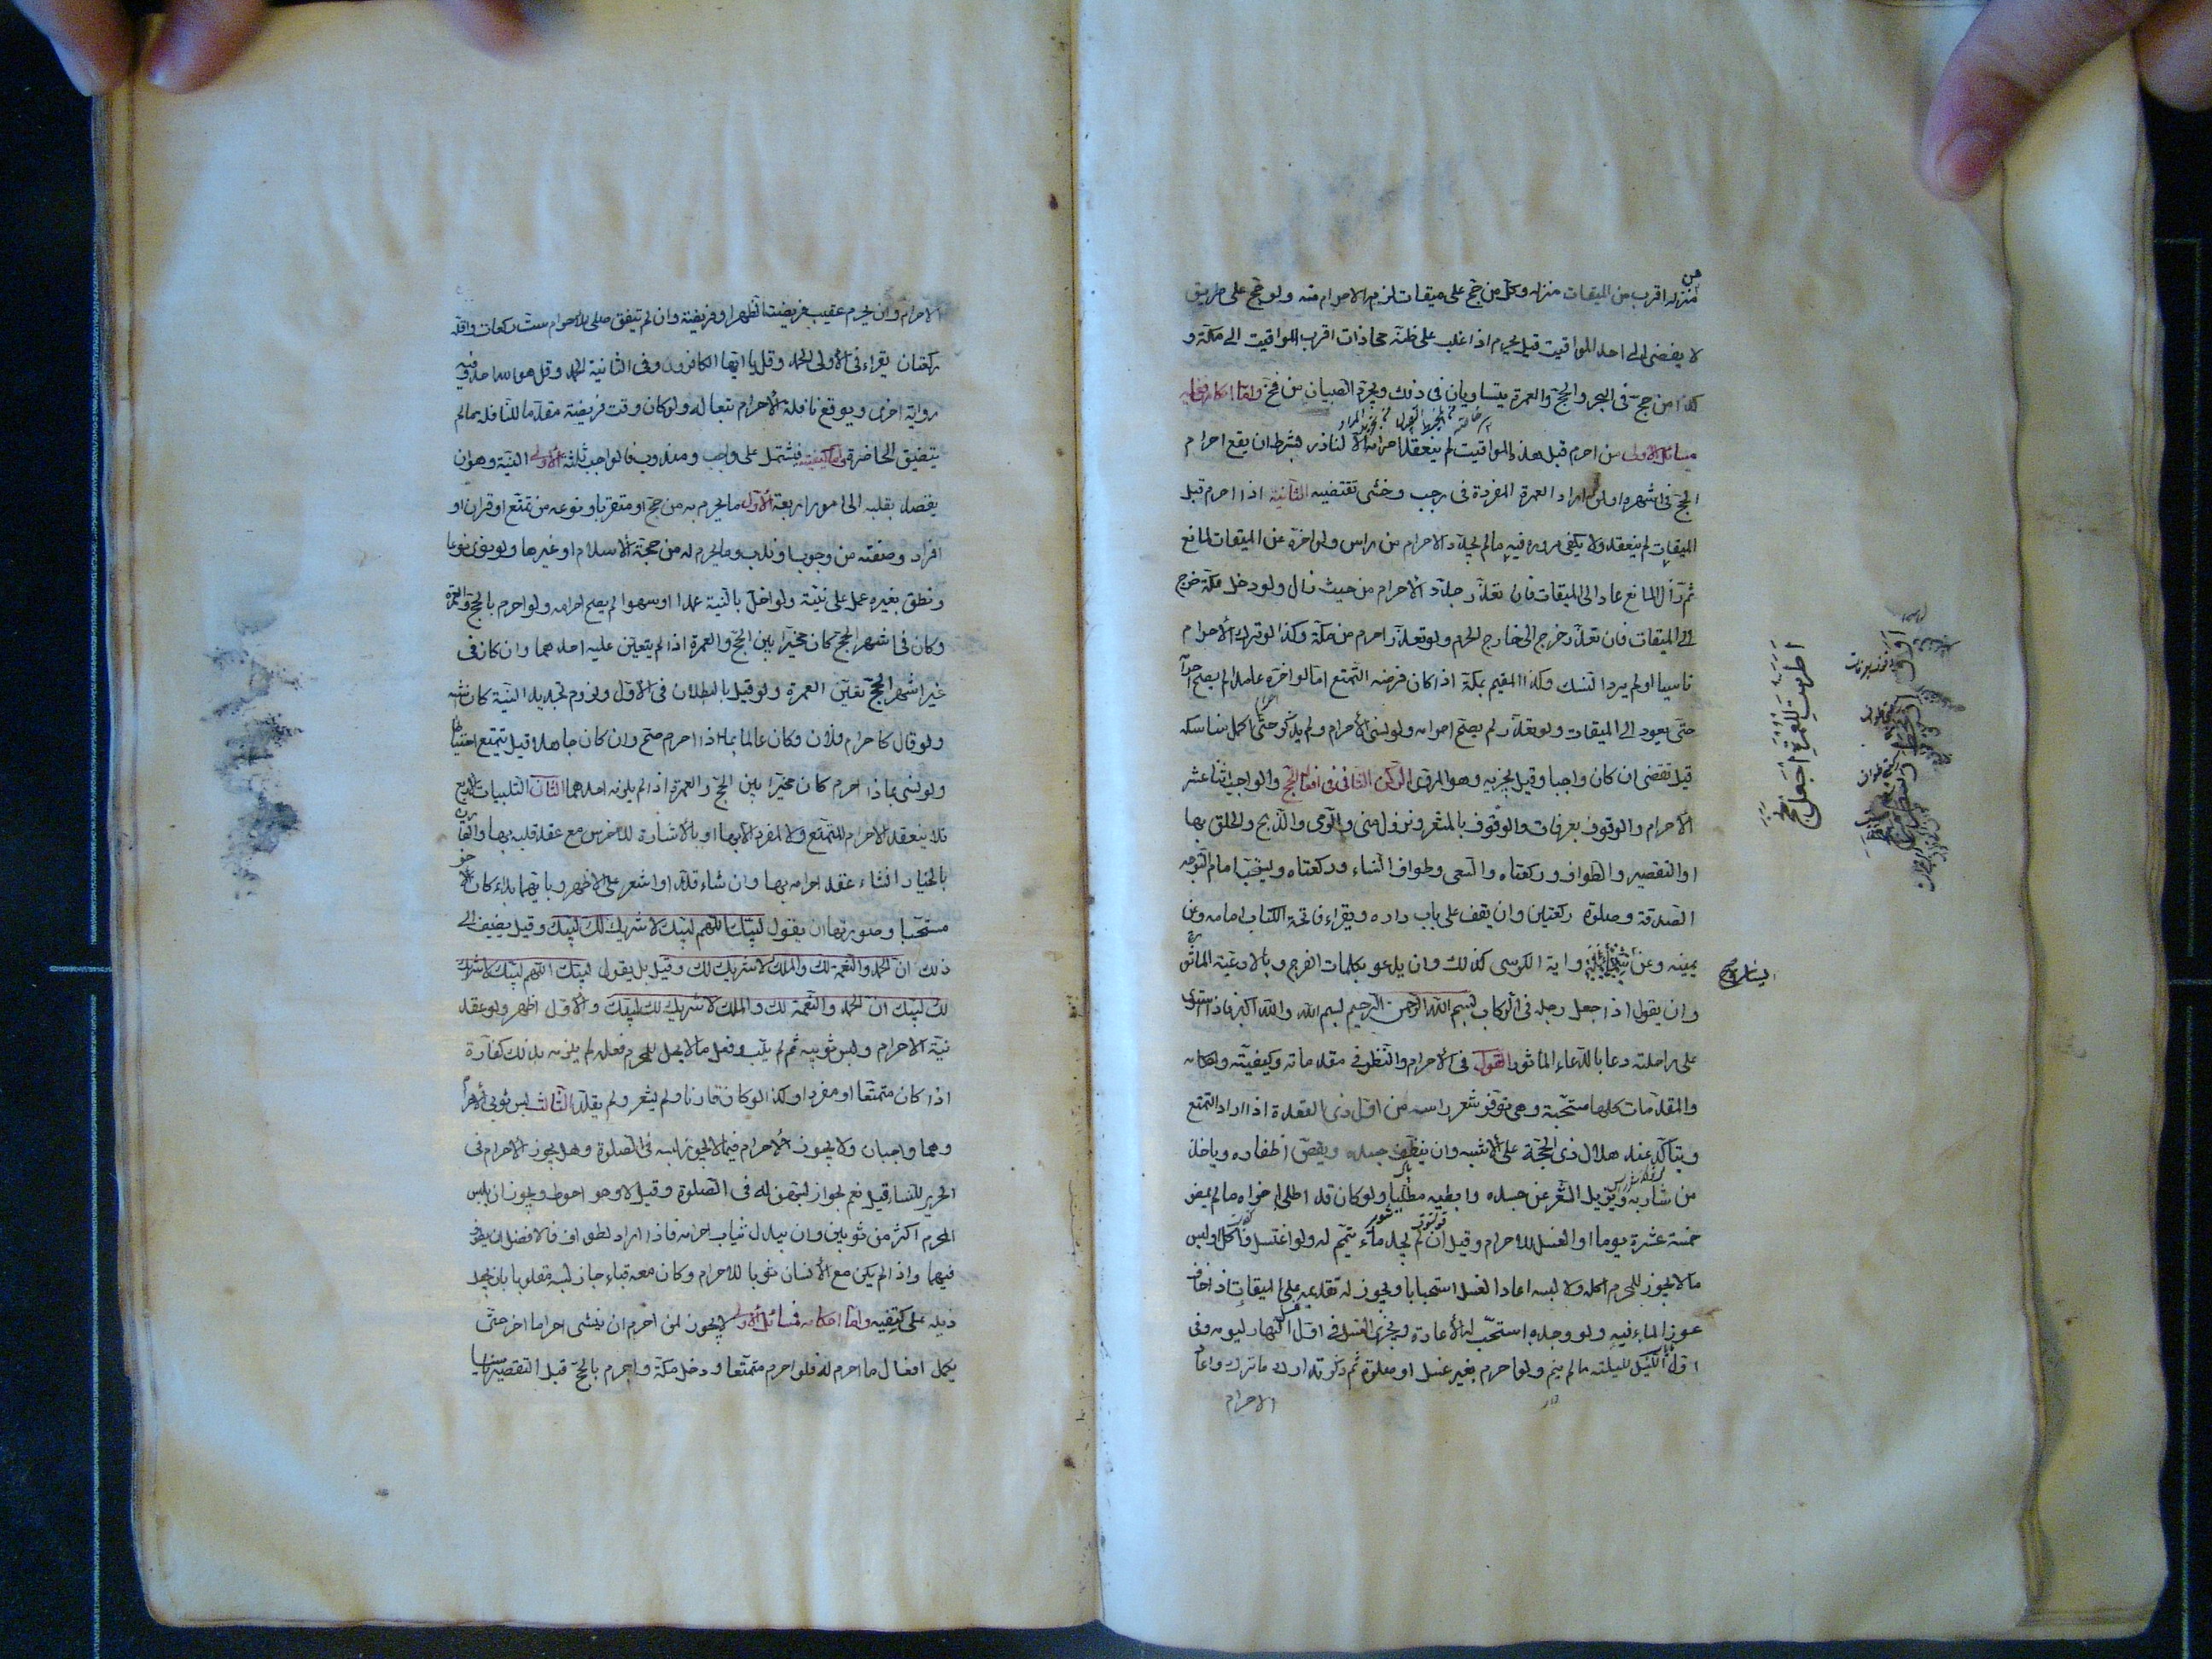 من
منزله اقرب من الميقات منزله وكل من حج على ميقات لزمه الاحرام منه ولو حج على طريق
لا يفضى الى احد المواقيت قيل يحرم اذا غلب على ظنه محاذات اقرب المواقيت الى مكة و
كذا من حج فى البحر والحج والعمرة يتساويان فى ذلك ويجرد الصبيان من فخ واما احكامها ففيه
مسائل الاولى من احرم قبل هذه المواقيت لم ينعقد احرامه الا لناذر بشرط ان يقع احرام
الحج فى اشهره او لمن اراد العمرة المفردة فى رجب وخشى تقضيه الثانية اذا احرم قبل
الميقات لم ينعقد ولا يكفى مروره فيه مالم يجدد الاحرام من راس ولو اخره عن الميقات لمانع
ثم زال المانع عاد الى الميقات فان تعذر جدد الاحرام من حيث زال ولو دخل مكة خرج
الى الميقات فان تعذر خرج الى خارج الحرم ولو تعذر احرم من مكة وكذا لو ترك الاحرام
ناسيا او لم يرد النسك وكذا المقيم بمكة اذا كان فرضه التمتع اما لو اخره عامدا لم يصح احرامه
حتى يعود الى الميقات ولو تعذر لم يصح احرامه ولو نسى الاحرام ولم يذكر حتى اكمل مناسكه
قيل تقضى ان كان واجبا وقيل يجزيه وهو المروى الركن الثانى فى افعال الحج والواجب اثنا عشر
الاحرام والوقوف بعرفات والوقوف بالمشعر ونزول منى والرمى والذبح والحلق بها
او التقصير والطواف وركعتاه والسعى وطواف النساء وركعتاه ويستحب امام التوجه
الصدقة وصلوة ركعتين وان يقف على باب داره ويقراء فاتحة الكتاب امامه وعن
يمينه وعن واية الكرسى كذلك وان يدعو بكلمات الفرج وبالادعية الماثورة
وان يقول اذا جعل رجله فى الركاب بسم الله الرحمن الرحيم بسم الله والله اكبر فاذا استوى
على راحلته دعا بالدعاء الماثور القول فى الاحرام والنظر فى مقدماته وكيفيته واحكامه
والمقدمات كلها مستحبة وهى توفير شعر راسه من اول ذى القعدة اذا اراد التمتع
ويتأكد عند هلال ذى الحجة على الاشبه وان ينظف جسده ويقص اظفاره وياخذ
من شاربه ويزيل الشعر عن جسده وابطيه مطليا ولو كان قد اطلى اجزاه مالم يمض
خمسة عشرة يوما او الغسل للاحرام وقيل ان لم يجد ماء تيمم له ولو اغتسل واكل او لبس
مالا يجوز للمحرم اكله ولا لبسه اعاد الغسل استحبابا ويجوز له تقديمه على الميقات اذا خاف
عوز الماء فيه ولو وجده استحب له الاعادة ويجزى الغسل فى اول النهار ليومه وفى
اول الليل لليلته مالم ينم ولو احرم بغير غسل او صلوة ثم ذكر تدارك ما تركه واعاد
الاحرام
الاحرام وان يحرم عقيب فريضة الظهر او فريضة وان لم يتفق صلى للاحرام ست ركعات واقله
ركعتان يقراء فى الاولى الحمد وقل يا ايها الكافرون وفى الثانية الحمد وقل هو الله احد وفيه
رواية اخرى ويوقع نافلة الاحرام تبعا له ولو كان وقت فريضة مقدما للنافلة مالم
يتضيق الحاضرة واما كيفيته فيشتمل على واجب ومندوب فالواجب ثلثة الاول النية وهو ان
يقصد بقلبه الى امور اربعة الاول ما يحرم به من حج او عمرة متقربا ونوعه من تمتع او قران او
افراد وصفته من وجوب او ندب وما يحرم له من حجة الاسلام او غيرها ولو نوى نوعا
ونطق بغيره عمل على نيته ولو اخل بالنية عمدا او سهوا لم يصح احرامه ولو احرم بالحج والعمرة
وكان فى اشهر الحج كان مخيرا بين الحج والعمرة اذا لم يتعين عليه احدهما وان كان فى
غير اشهر الحج تعين العمرة ولو قيل بالبطلان فى الاول ولزوم تجديد النية كان اشبه
ولو قال كاحرام فلان وكان عالما بماذا احرم صح وان كان جاهلا قيل يتمتع احتياطا
ولو نسى بماذا احرم كان مخيرا بين الحج والعمرة اذا لم يلزمه احدهما الثانى التلبيات الاربع
فلا ينعقد الاحرام للمتمتع ولا لمفرد الا بها او بالاشارة للاخرس مع عقد قلبه بها والقارن
بالخيار ان شاء عقد احرامه بها وان شاء قلد او اشعر على الاظهر وبايهما بداء كان الاخر
مستحبا وصورتها ان يقول لبيك اللهم لبيك لا شريك لك لبيك وقيل يضيف الى
ذلك ان الحمد والنعمة لك والملك لا شريك لك وقيل بل يقول لبيك اللهم لبيك لا شريك
لك لبيك ان الحمد والنعمة لك والملك لا شريك لك لبيك والاول اظهر ولو عقد
نية الاحرام ولبس ثوبيه ثم لم يلب وفعل مالا يحل للمحرم فعله لم يلزمه بذلك كفارة
اذا كان متمتعا او مفردا وكذا لو كان قارنا ولم يشعر ولم يقلد الثالث لبس ثوبى الاحرام
وهما واجبان ولا يجوز الاحرام فيما لا يجوز لبسه فى الصلوة وهل يجوز الاحرام فى
الحرير للنساء قيل نعم لجواز لبسهن له فى الصلوة وقيل لا وهو احوط ويجوز ان يلبس
المحرم اكثر من ثوبين وان يبدل ثياب احرامه فاذا اراد لطواف فالافضل ان يطوف
فيهما واذا لم يكن مع الانسان ثوبا للاحرام وكان معه قباء جاز لبسه مقلوبا بان يجعل
ذيله على كتفيه واما احكامه فمسائل الاولى لا يجوز لمن احرم ان ينشى احراما اخر حتى
يكمل افعال ما احرم له فلو احرم متمتعا ودخل مكة واحرم بالحج قبل التقصير ناسيا